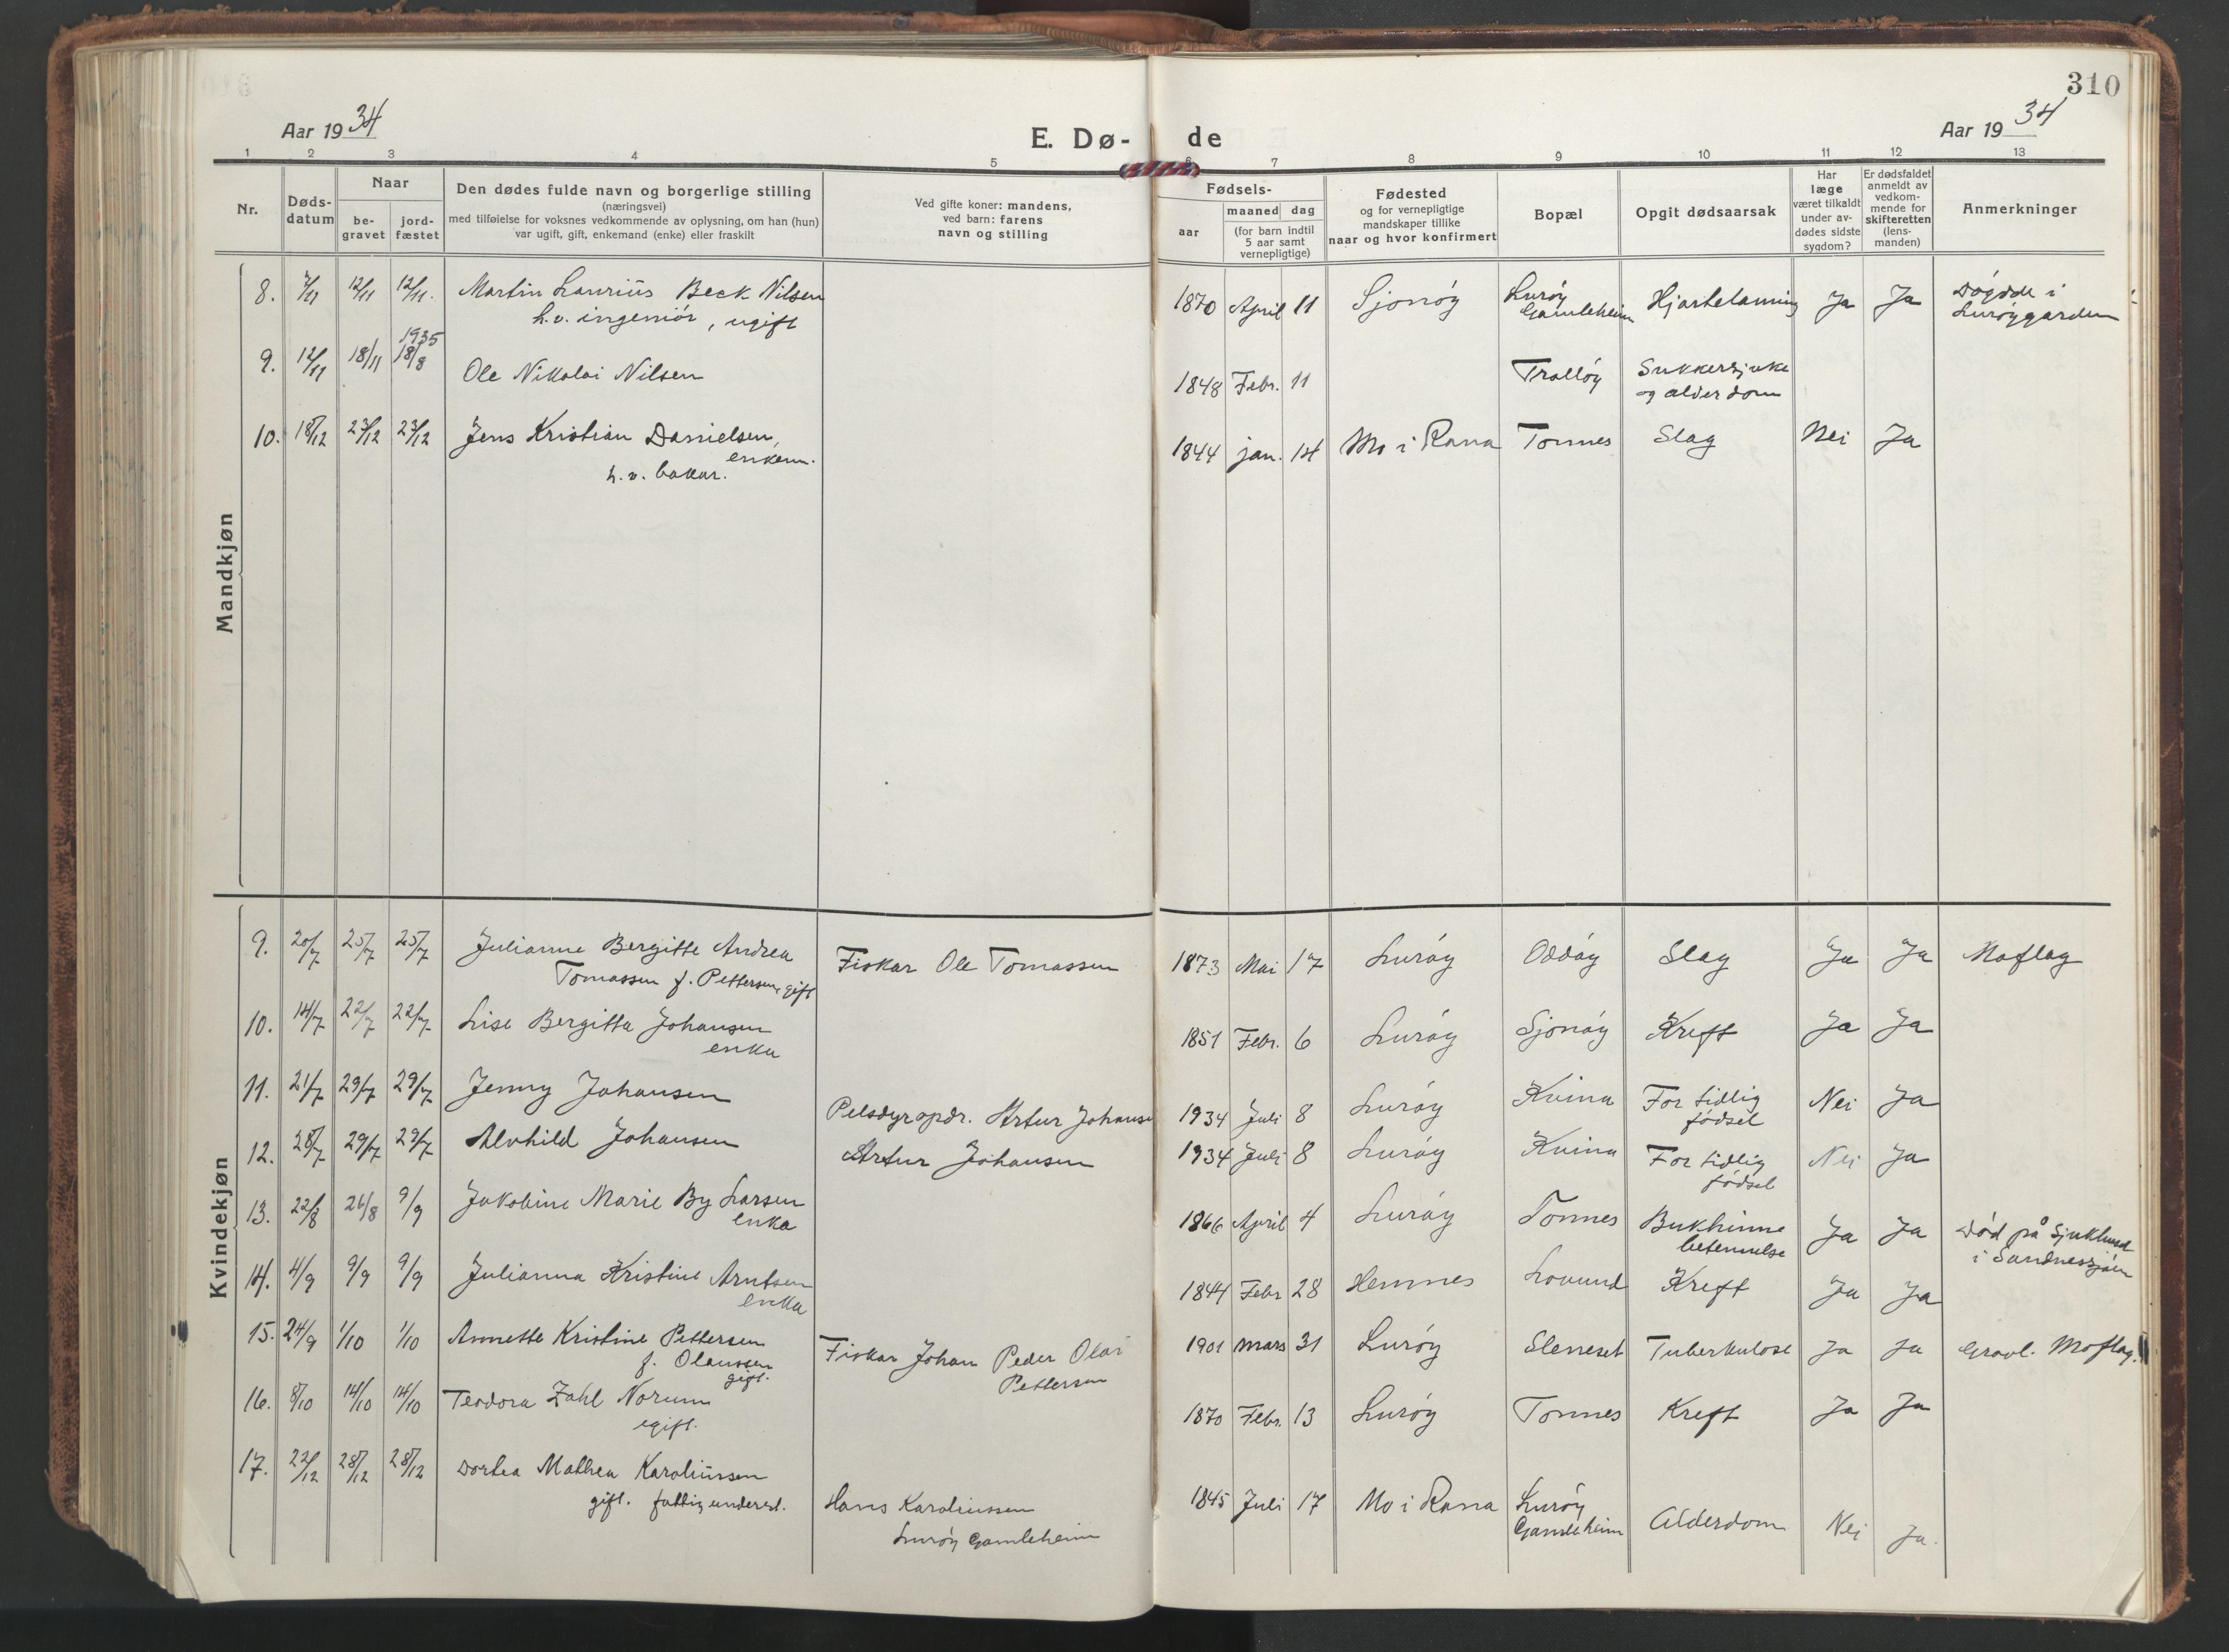 310
Aar 1934
E. Dø-
de
Aar 1934
1 2 3 4 5 6 7 8 9 10 11 12 13
Nr.
Døds-
datum
Naar
be-
gravet
jord-
fæstet
Den dødes fulde navn og borgerlige stilling
(næringsvei)
med tilføielse for voksnes vedkommende av oplysning, om han (hun)
var ugift, gift, enkemand (enke) eller fraskilt
Ved gifte koner: mandens,
ved barn: farens
navn og stilling
Fødsels-
aar
maaned dag
(for barn indtil
5 aar samt
vernepligtige)
Fødested
og for vernepligtige
mandskaper tillike
naar og hvor konfirmert
Bopæl
Opgit dødsaarsak
Har
læge
været tilkaldt
under av-
dødes sidste
sygdom?
Er dødsfaldet
anmeldt av
vedkom-
mende for
skifteretten
(lens-
manden)
Anmerkninger
Mandkjøn
8. 7/11 12/11 12/11. Martin Laurius Beck Nilsen 1870 April 11 Sjonøy Lurøy Hjartelaming Ja Ja Døydde i
h.v. ingeniør, ugift Gamleheim Lurøygarden
1935
9. 12/11 18/11 18/8 Ole Nikolai Nilsen 1848 Febr. 11 Tralløy Sukkersjuke
og alderdom
10. 18/12 23/12 23/12 Jens Kristian Danielsen, 1844 jan. 14 Mo i Rana Tonnes Slag Nei Ja
enkem.
h.v. bakar.
Kvindekjøn
9. 20/7 25/7 25/7 Julianne Bergitte Andrea Fiskar Ole Tomassen 1873 Mai 17 Lurøy Oddøy Slag Ja Ja Moflag
Tomassen f. Pettersen, gift
10. 14/7 22/7 22/7 Lise Bergitta Johansen 1851 Febr. 6 Lurøy Sjonøy Kreft Ja Ja
enka
11. 21/7 29/7 29/7 Jenny Johansen Pelsdyropdr. Artur Johansen 1934 Juli 8 Lurøy Kvina For tidlig Nei Ja
fødsel
12. 28/7 29/7 29/7 Alvhild Johansen Artur Johansen 1934 Juli 8 Lurøy Kvina For tidlig Nei Ja
fødsel
13. 22/8 26/8 9/9 Jakobine Marie By Larsen 1866 April 4 Lurøy Tonnes Bukhinne Ja Ja Død på Sjukhuset
enka betennelse i Sandnessjøen
14. 4/9 9/9 9/9 Julianna Kristine Arntsen 1844 Febr 28 Hemnes Lovund Kreft Ja Ja
enka
15. 24/9 1/10 1/10 Annette Kristine Pettersen Fiskar Johan Peder Olai 1901 Mars 31 Lurøy Sleneset Tuberkulose Ja Ja Gravl. Moflag.
f. Olaussen Pettersen
gift.
16. 8/10 14/10 14/10 Teodora Zahl Norum 1870 Febr. 13 Lurøy Tonnes Kreft Ja Ja
ugift.
17. 22/12 28/12 28/12 Dortea Mathea Karoliussen 1845 Juli 17 Mo i Rana Lurøy Alderdom Nei Ja.
gift. fattigunderst. Hans Karoliussen Gamleheim
Lurøy Gamleheim